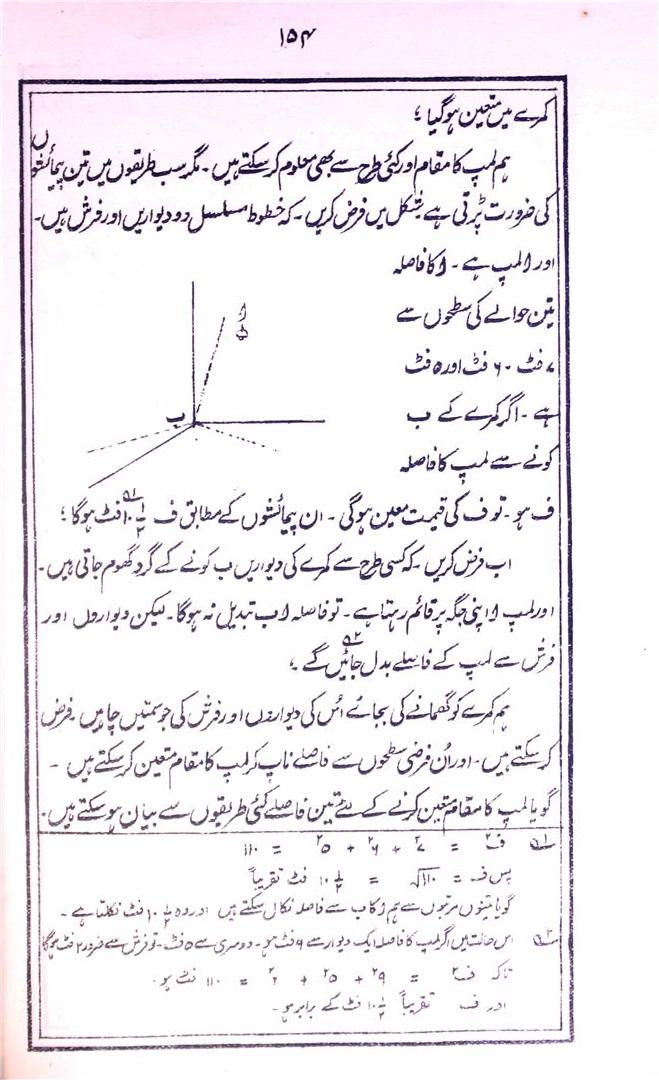 ۱۵۴
کمرے میں متعین ہوگیا ؛
ہم لمپ کا مقام اور کئی طرح سے بھی معلوم کرسکتے ہیں ۔ مگر سب طریقوں میں تین پیمائشوں
کی ضرورت پڑتی ہے شکل میں فرض کریں ۔ کہ خطوط مسلسل دو دیواریں اور فرش ہیں۔
اور ا لمپ ہے ۔ ا کا فاصلہ
تین حوالے کی سطحوں سے
۷ فٹ ۔ ۶ فٹ اور ۵ فٹ
ہے ۔ اگر کمرے کے ب
کونے سے لمپ کا فاصلہ
ا
ف
ب
ف ہو ۔ تو ف کی قیمت معین ہوگی ۔ ان پیمائشوں کے مطابق ف ۱۰ ۱/۲ فٹ ہوگا ؛
اب فرض کریں ۔ کہ کسی طرح سے کمرے کی دیواریں ب کونے کے گرد گھوم جاتی ہیں۔
اور لمپ ا اپنی جگہ پر قائم رہتا ہے ۔ تو فاصلہ ا ب تبدیل نہ ہوگا ۔ لیکن دیواروں اور
فرش سے لمپ کے فاصلے بدل جائیں گے ؛
ہم کمرے کو گھمانے کی بجائے اُس کی دیواروں اور فرش کی جو سمتیں چاہیں ۔ فرض
کرسکتے ہیں ۔ اور اُن فرضی سطحوں سے فاصلے ناپ کر لمپ کا مقام متعین کرسکتے ہیں ۔
گویا لمپ کا مقام متعین کرنے کے لئے تین فاصلے کئی طریقوں سے بیان ہوسکتے ہیں۔
۱؎ ف۲ = ۷۲ + ۶۲ + ۵۲ = ۱۱۰
پس ف = √۱۱۰ = ۱۰ ۱/۲ فٹ تقریباً
گویا تینوں مرتبوں سے ہم ا کا ب سے فاصلہ نکال سکتے ہیں اور وہ ۱۰ ۱/۲ فٹ نکلتا ہے ۔
۲؎ اس حالت میں اگر لمپ کا فاصلہ ایک دیوار سے ۹ فٹ ہو ۔ دوسری سے ۵ فٹ ۔ تو فرش سے ضرور ۲ فٹ ہوگا
تاکہ ف۲ = ۹۲ + ۵۲ + ۲۲ = ۱۱۰ فٹ ہو ۔
اور ف تقریباً ۱۰ ۱/۲ فٹ کے برابر ہو ۔